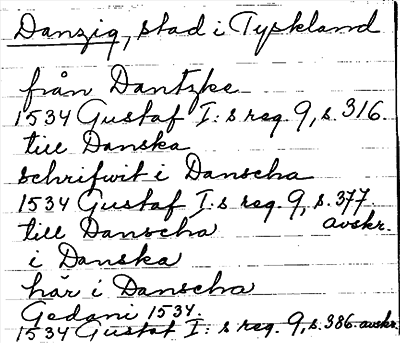 Danzig, stad i Tyskland
från Dantzke
1534 Gustaf I:s reg. 9, s. 316.
till Danska
schrifwit i Danscha
1534 Gustaf I:s reg. 9, s. 377.
avskr.
till Danscha
i Danska
här i Danscha
Gedani 1534.
1534 Gustaf I:s reg. 9, s. 386. avskr.